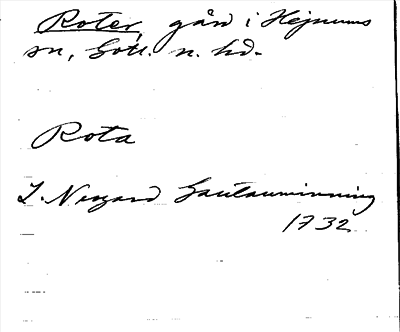 Roter, gård i Hejnums
sn, Gotl. n. hd.
Rota
L. Neogard Gautauminning
1732